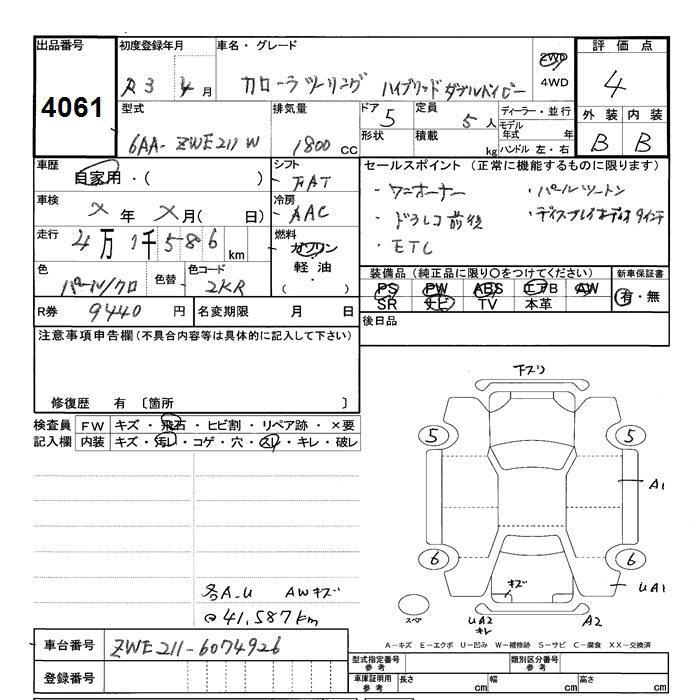 出品番号
4061
初度登録年月
R3 年 4 月
車名・グレード
カローラツーリング ハイブリッドダブルバイビー
2WD
4WD
評価点
4
外装 内装
B B
型式
6AA-ZWE211W
排気量
1800 CC
ドア
5
定員
5 人
形状
積載
kg
ディーラー・並行
モデル
年式 年
ハンドル 左・右
車歴
自家用・( )
シフト
FAT
車検
メ 年 メ 月( 日)
冷房
AAC
走行
4万1千586km
燃料
ガソリン
軽油
・
( )
色
パール/クロ
色替
色コード
2KR
R券 9440 円
名変期限 月 日
セールスポイント (正常に機能するものに限ります)
・ワンオーナー
・パールツートン
・ドラレコ前後
・ディスプレイオーディオ9インチ
・ETC
装備品 (純正品に限り○をつけてください)
PS PW ABS エアB AW
SR ナビ TV 本革
新車保証書
有・無
後日品
注意事項申告欄(不具合内容等は具体的に記入して下さい)
修復歴 有 〔箇所 〕
検査員
記入欄
FW キズ・飛石・ヒビ割・リペア跡・×要
内装 キズ・汚レ・コゲ・穴・スレ・キレ・破レ
各A-U AWキズ
@41,587km
下スリ
5
5
A1
6
6
UA1
キズ
スペア
UA2
キレ
A2
A-キズ E-エクボ U-凹み W-補修跡 S-サビ C-腐食 XX-交換済
車台番号 ZWE211-6074926
登録番号
型式指定番号
参考
類別区分番号
参考
車庫証明用
参考
長さ cm
幅 cm
高さ cm